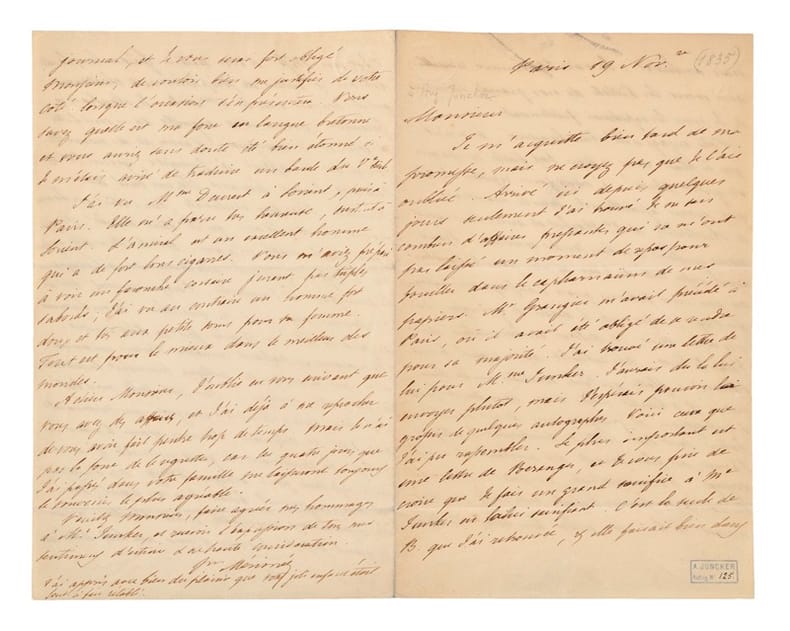 Paris 19 Nov.re (1835)
Monsieur
Je m'acquitte bien tard de ma
promesse, mais ne croyez pas que je l'aie
oublié. Arrivé ici depuis quelques
jours seulement j'ai trouvé je ne sais
combien d'affaires pressantes qui ne m'ont
pas laissé un moment de repos pour
fouiller dans le capharnaüm de mes
papiers. Mr Grangier m'avait précédé à
Paris, où il avait été obligé de se rendre
pour sa majorité. J'ai trouvé une lettre de
lui pour M.me Juncker. J'aurais dû la lui
envoyer plutot, mais j'espérais pouvoir lui
quelques autographes. Voici ceux que
j'ai pu rassembler. Le plus important est
une lettre de Beranger, et je vous prie de
croire que je fais un grand sacrifice à Me
Juncker en la lui C'est la seule de
B. que j'ai retrouvée, & elle faisait bien dans
A. JUNCKER
125.
journal, et je vous serai fort obligé
Monsieur, de vouloir bien me justifier de votre
coté lorsque l'occasion s'en présentera. Vous
savez quelle est ma force en langue bretonne
et vous auriez sans doute été bien étonné si
je m'étais avisé de traduire un barde du
J'ai vu Mme à Lorient, puis à
Paris. Elle m'a paru très heureuse, surtout à
Lorient. L'amiral est un excellent homme
qui a de fort bons cigares. Vous m'aviez préparé
à voir un farouche corsaire jurant par triples
sabords; j'ai vu au contraire un homme fort
doux et très aux petits soins pour sa femme.
Tout est pour le mieux dans le meilleur des
mondes.
Adieu Monsieur, j'oublie en vous écrivant que
vous avez des affaires, et j'ai déjà à me reprocher
de vous avoir fait perdre trop de temps. Mais je n'ai
pas la force de le regretter, car les quatre jours que
j'ai passés dans votre famille me laisseront toujours
le souvenir le plus agréable.
Veuillez Monsieur, faire agréer mes hommages
à Me Juncker, et recevoir l'expression de tous mes
sentimens d'estime & de haute considération.
Pr Mérimée
J'ai appris avec bien du plaisir que votre joli enfant était
tout à fait rétabli.